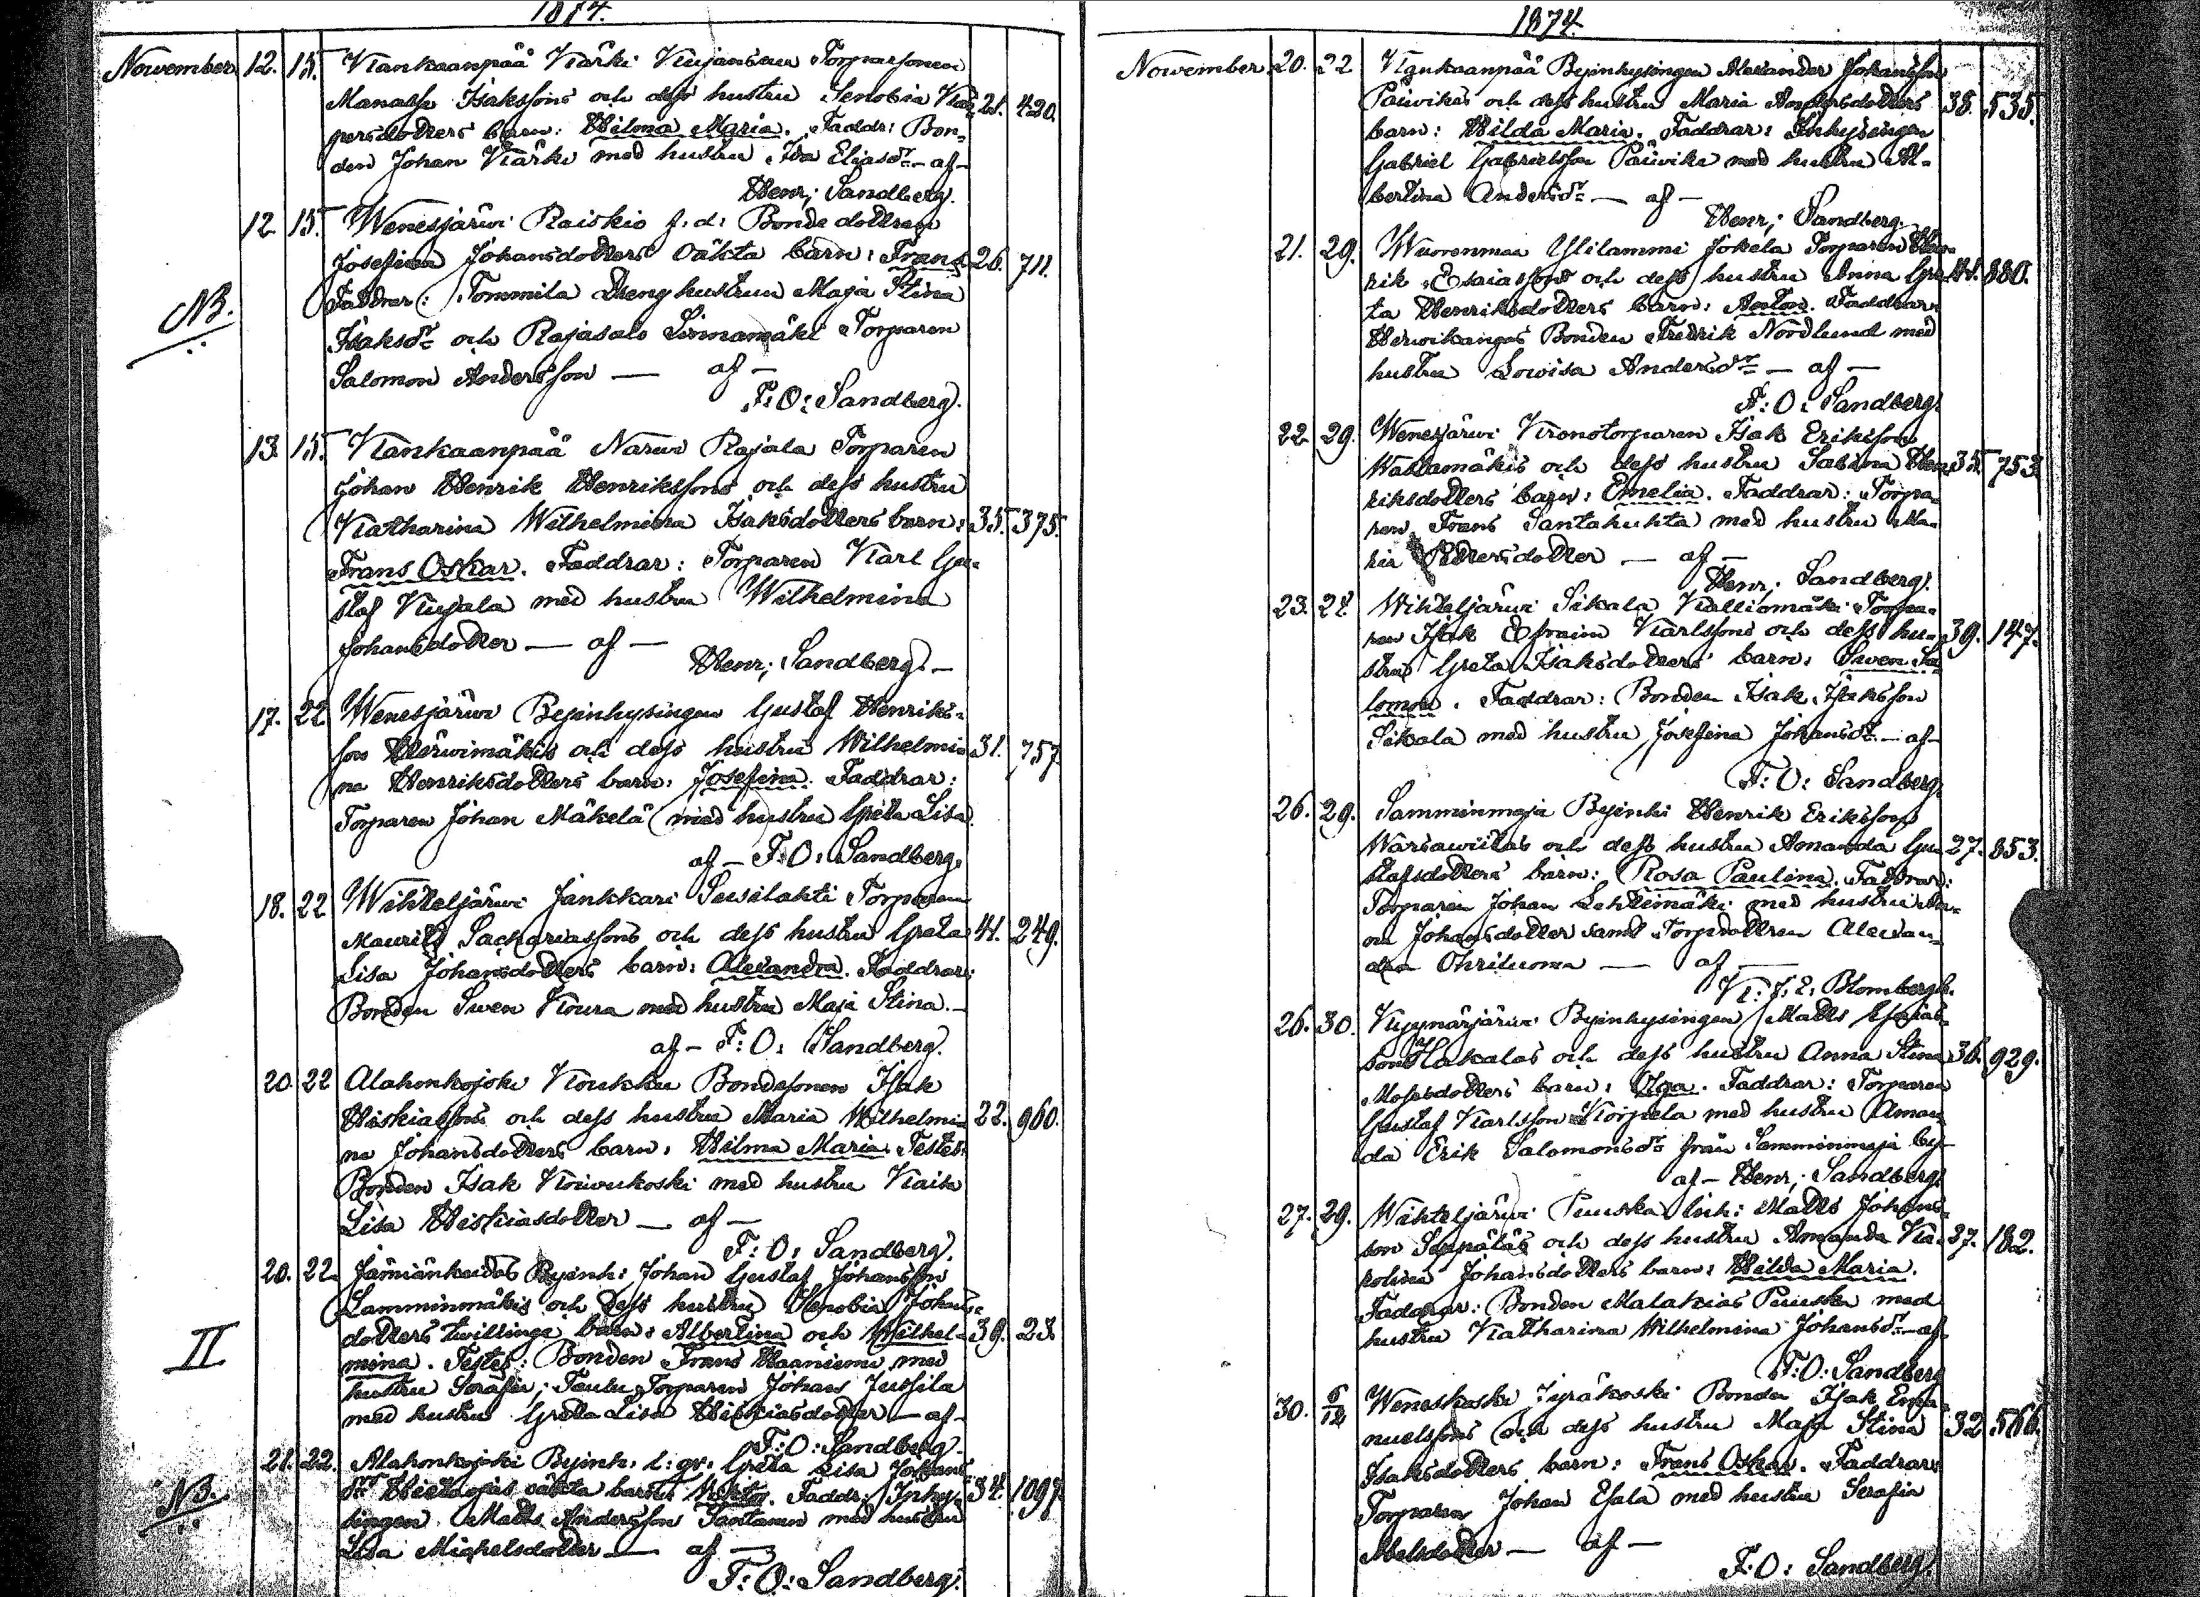 1874.
November 12. 15. Kankaanpää Kärki Kujansuu Torparsonen
Manasse Isakssons och dess hustru Senobia Kas- 21. 420.
persdotters barn: Hilma Maria. Faddr: Bon-
den Johan Kärki med hustru Eva Eliasdr — af —
Henr; Sandberg.
12. 15. Wenesjärwi Raiskio f. d. Bonde dottren
NB. Josefina Johansdotters oäkta barn: Frans 26. 711.
Faddrar: Tommila Dreng hustrun Maja Stina
Isaksdr och Rajasalo Linnamäki Torparen
Salomon Andersson — af —
F: O: Sandberg.
13. 15. Kankaanpää Narwi Rajala Torparen
Johan Henrik Henrikssons och dess hustru
Katharina Wilhelmina Isaksdotters barn: 35. 375.
Frans Oskar. Faddrar: Torparen Karl Gu-
staf Kujala med hustru Wilhelmina
Johansdotter — af —
Henr; Sandberg. —
17. 22. Wenesjärwi Byinhysingen Gustaf Henriks-
son Härwimäkis och dess hustru Wilhelmi- 31. 757.
na Henriksdotters barn: Josefina. Faddrar:
Torparen Johan Mäkelä med hustru Greta Lisa
af — F: O: Sandberg.
18. 22 Wihteljärwi Jankkari Susilahti Torparen
Maurits Sachariassons och dess hustru Greta 41. 249.
Lisa Johansdotters barn: Alexandra. Faddrar:
Bonden Swen Koura med hustru Maja Stina. —
af — F: O: Sandberg.
20. 22 Alahonkojoki Koukku Bondesonen Isak
Hiskiassons och dess hustru Maria Wilhelmi- 22. 960.
na Johansdotters barn: Hilma Maria. Testes:
Bonden Isak Koiwukoski med hustru Kaisa
Lisa Hiskiasdotter — af —
F: O: Sandberg.
20. 22. Jämiänkeidas Byinh: Johan Gustaf Johansson
Lamminmäkis och dess hustru Henobia Johans-
II dotters twillinge barn: Albertina och Wilhel- 39. 23.
mina. Testes: Bonden Frans Haaniemi med
hustru Serafia; Torparen Johan Jussila
med hustru Greta Lisa Hiskiasdotter — af —
F: O: Sandberg.
21. 22. Alahonkojoki Byinh. l: gr: Greta Lisa Johans-
NB. dr oäkta barn: Faddr: Inhy- 34. 1097.
singen Matts Andersson Santanen med hustru
Lisa Michelsdotter — af —
F: O: Sandberg.
1874.
November 20. 22 Kankaanpää Byinhysingen Alexander Johansson
Päiwikes och dess hustru Maria Andersdotters 38. 535.
barn: Hilda Maria. Faddrar: Inhysingen
Gabriel Gabrielsson Päiwike med hustru Al-
bertina Andersdr — af —
Henr; Sandberg.
21. 29. Wuorenmaa Ylilammi Jokela Torparen Hen-
rik Esaiassons och dess hustru Anna Gre- 44. 880.
ta Henriksdotters barn: Anton. Faddrar:
Herwikangas Bonden Fredrik Nordlund med
hustru Lowisa Andersdr — af —
F: O: Sandberg.
22. 29. Wenesjärwi Kronotorparen Isak Eriksson
Wattamäkis och dess hustru Sabina Hen- 35. 753.
riksdotters barn: Emelia. Faddrar: Torpa-
ren Frans Santahuhta med hustru Ma-
ria — af —
Henr. Sandberg.
23. 24. Wihteljärwi Sikala Kalliomäki Torpa-
ren Isak Efraim Karlssons och dess hu- 39. 147.
strus Greta Isaksdotters barn: Swen Sa-
lomon. Faddrar: Bonden Isak Isaksson
Sikala med hustru Josefina Johansdr — af —
F: O: Sandberg.
26. 29. Samminmaja Byinhi Henrik Eriksson
och dess hustru Amanda Gu- 27. 853.
stafsdotters barn: Rosa Paulina. Faddrar:
Torparen Johan Lehtimäki med hustru An-
na Johansdotter samt Torpdottren Alexan-
dra Ohriluoma — af —
K: J: E: Blombergh.
26. 30. Kyynärjärwi Byinhysingen Matts Esaias-
son Hakalas och dess hustru Anna Stina 36. 929.
Mosesdotters barn: Olga. Faddrar: Torparen
Gustaf Karlsson Korpela med hustru Aman-
da Erik Salomonsdr från Samminmaja by —
af — Henr; Sandberg.
27. 29. Wihteljärwi Puuska Inh: Matts Johans-
son Seppäläs och dess hustru Amanda Ka- 37. 182.
rolina Johansdotters barn: Hilda Maria.
Faddrar: Bonden Malakias Puuska med
hustru Katharina Wilhelmina Johansdr — af —
F: O: Sandberg
30. 6/12 Weneskoski Jyräkoski Bonden Isak Ema-
nuelssons och dess hustru Maja Stina 32 566.
Isaksdotters barn: Frans Oskar. Faddrar:
Torparen Johan Esala med hustru Serafia
Abelsdotter — af —
F: O: Sandberg.